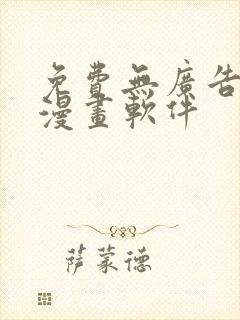 免費無廣告
漫畫軟件
萨蒙德